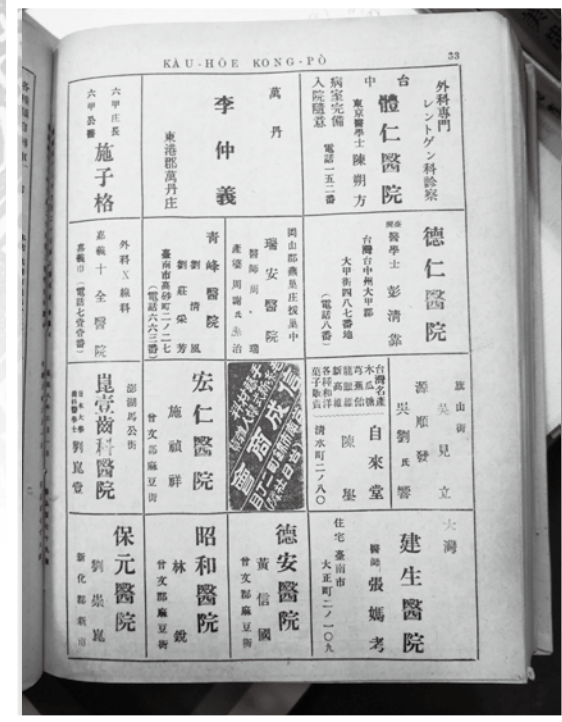 KÀU-HŌE KONG-PÒ
33
外科專門
レントゲン科診察
台中
體仁醫院
東京醫學士 陳朔方
病室完備
入院隨意
電話一五二番
萬丹
李仲義
東港郡萬丹庄
六甲庄長
六甲公醫
施子格
德仁醫院
醫學士 彭清靠
台灣台中州大甲郡
大甲街四八七番地
(電話八番)
岡山郡燕巢庄援巢中
瑞安醫院
醫師 周瑞
產婆 周謝氏
青峰醫院
劉清風
劉莊榮芳
臺南市高砂町二ノ二七
(電話六六三番)
外科X線科
嘉義十全醫院
嘉義市(電話七壹壹番)
旗山街
吳見立
源順發
吳劉氏響
台灣名產
木瓜糖
芎蕉飴
龍眼糖
新高糖
各種和洋
菓子敬賣
自來堂
陳
清水町二ノ八〇
信成商會
宏仁醫院
施禎祥
曾文郡麻豆街
澎湖馬公街
崑壹齒科醫院
日本大學
齒科醫學士 劉崑堂
大灣
建生醫院
醫師 張媽考
住宅 臺南市
大正町二ノ一〇九
德安醫院
黃信國
曾文郡麻豆街
昭和醫院
林銳
曾文郡麻豆街
保元醫院
劉崇崑
新化郡新市